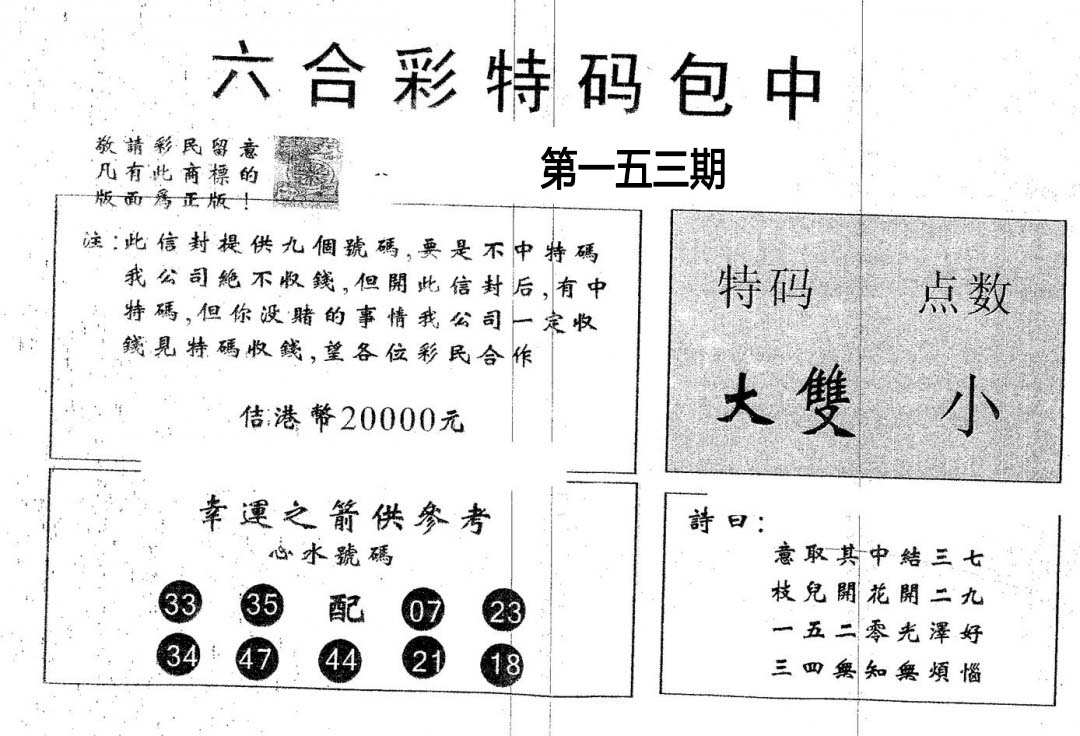 六合彩特码包中
第一五三期
敬請彩民留意
凡有此商標的
版面爲正版！
注：此信封提供九個號碼,要是不中特碼
我公司絶不收錢,但開此信封后,有中
特碼,但你没賭的事情我公司一定收
錢見特碼收錢,望各位彩民合作
佶港幣20000元
特码 点数
大雙 小
幸運之箭供參考
心水號碼
33 35 配 07 23
34 47 44 21 18
詩曰：
意取其中結三七
枝兒開花開二九
一五二零光澤好
三四無知無煩惱